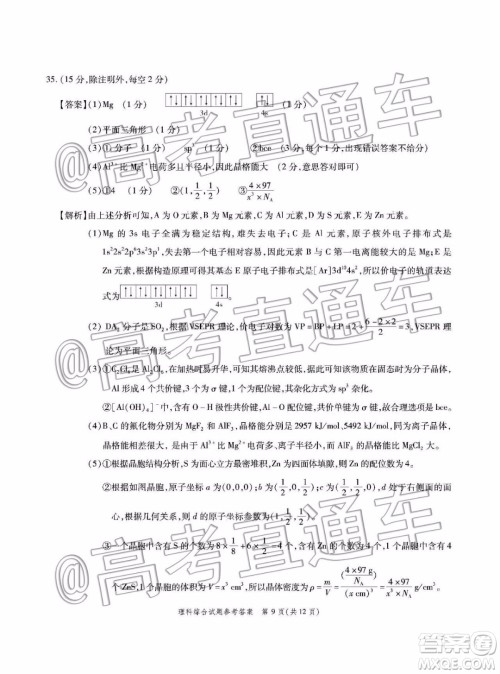 35. (15 分,除注明外,每空 2 分)
【答案】(1)Mg (1 分) ↑↓ ↑↓ ↑↓ ↑↓ ↑↓ ↑↓
3d 4s
(2)平面三角形 (1 分)
(3)①分子 (1 分) sp³ (1 分) ②bce (2 分,出现错误答案不给分)
(4)Al³⁺比 Mg²⁺电荷多且半径小,因此晶格能大 (2 分,意思答对即可)
(5)①4 (1 分) ②(1, 1/2, 1/2) ③ 4×97/(x³×N_A)
【解析】由上述分析可知,A 为 O 元素,B 为 Mg 元素,C 为 Al 元素,D 为 S 元素,E 为 Zn 元素。
(1)Mg 的 3s 电子全满为稳定结构,难失去电子;C 是 Al 元素,原子核外电子排布式是
1s²2s²2p⁶3s²3p¹,失去第一个电子相对容易,因此元素 B 与 C 第一电离能较大的是 Mg;E 是
Zn 元素,根据构造原理可得其基态 E 原子电子排布式是[Ar]3d¹⁰4s²,所以价电子的轨道表达
式为 ↑↓ ↑↓ ↑↓ ↑↓ ↑↓ ↑↓ 。
3d 4s
(2) DA₂ 分子是 SO₂,根据 VSEPR 理论,价电子对数为 VP=BP+LP=2+(6−2×2)/2=3,VSEPR 理
论为平面三角形。
(3)①C₂Cl₆ 是 Al₂Cl₆,在加热时易升华,可知其熔沸点较低,据此可以判断其固态时为分子晶体,
Al 形成 4 个共价键,3 个 σ 键,1 个为配位键,其杂化方式为 sp³ 杂化。
②[Al(OH)₄]⁻中,含有 O−H 极性共价键,Al−O 配位键,共价单键为 σ 键,故合理选项是 bce。
(4) B、C 的氟化物分别为 MgF₂ 和 AlF₃,晶格能分别是 2957 kJ/mol、5492 kJ/mol,同为离子晶体,
晶格能相差很大,是由于 Al³⁺比 Mg²⁺电荷多、半径小,而 AlF₃ 的晶格能比 MgCl₂ 大。
(5)①根据晶胞结构分析,S 为面心立方最密堆积,Zn 为四面体填隙,则 Zn 的配位数为 4。
② 如图晶胞,原子坐标 a 为(0,0,0);b 为(1/2,0,1/2);c 为(1/2,1/2,0),d 处于右侧面的面心,
根据几何关系,则 d 的原子坐标参数为(1, 1/2, 1/2)。
③ 一个晶胞中含有 S 的个数为 8×1/8+6×1/2=4,含有 Zn 的个数为 4 个,1 个晶胞中含有 4 个
ZnS,1 个晶胞的体积为 V=x³ cm³,所以晶体密度为 ρ=m/V=(4×97/N_A g)/(x cm)³=4×97/(x³×N_A) g/cm³。
理科综合试题参考答案 第 9 页(共 12 页)
@高考直通车
@高考直通车
@高考直通车